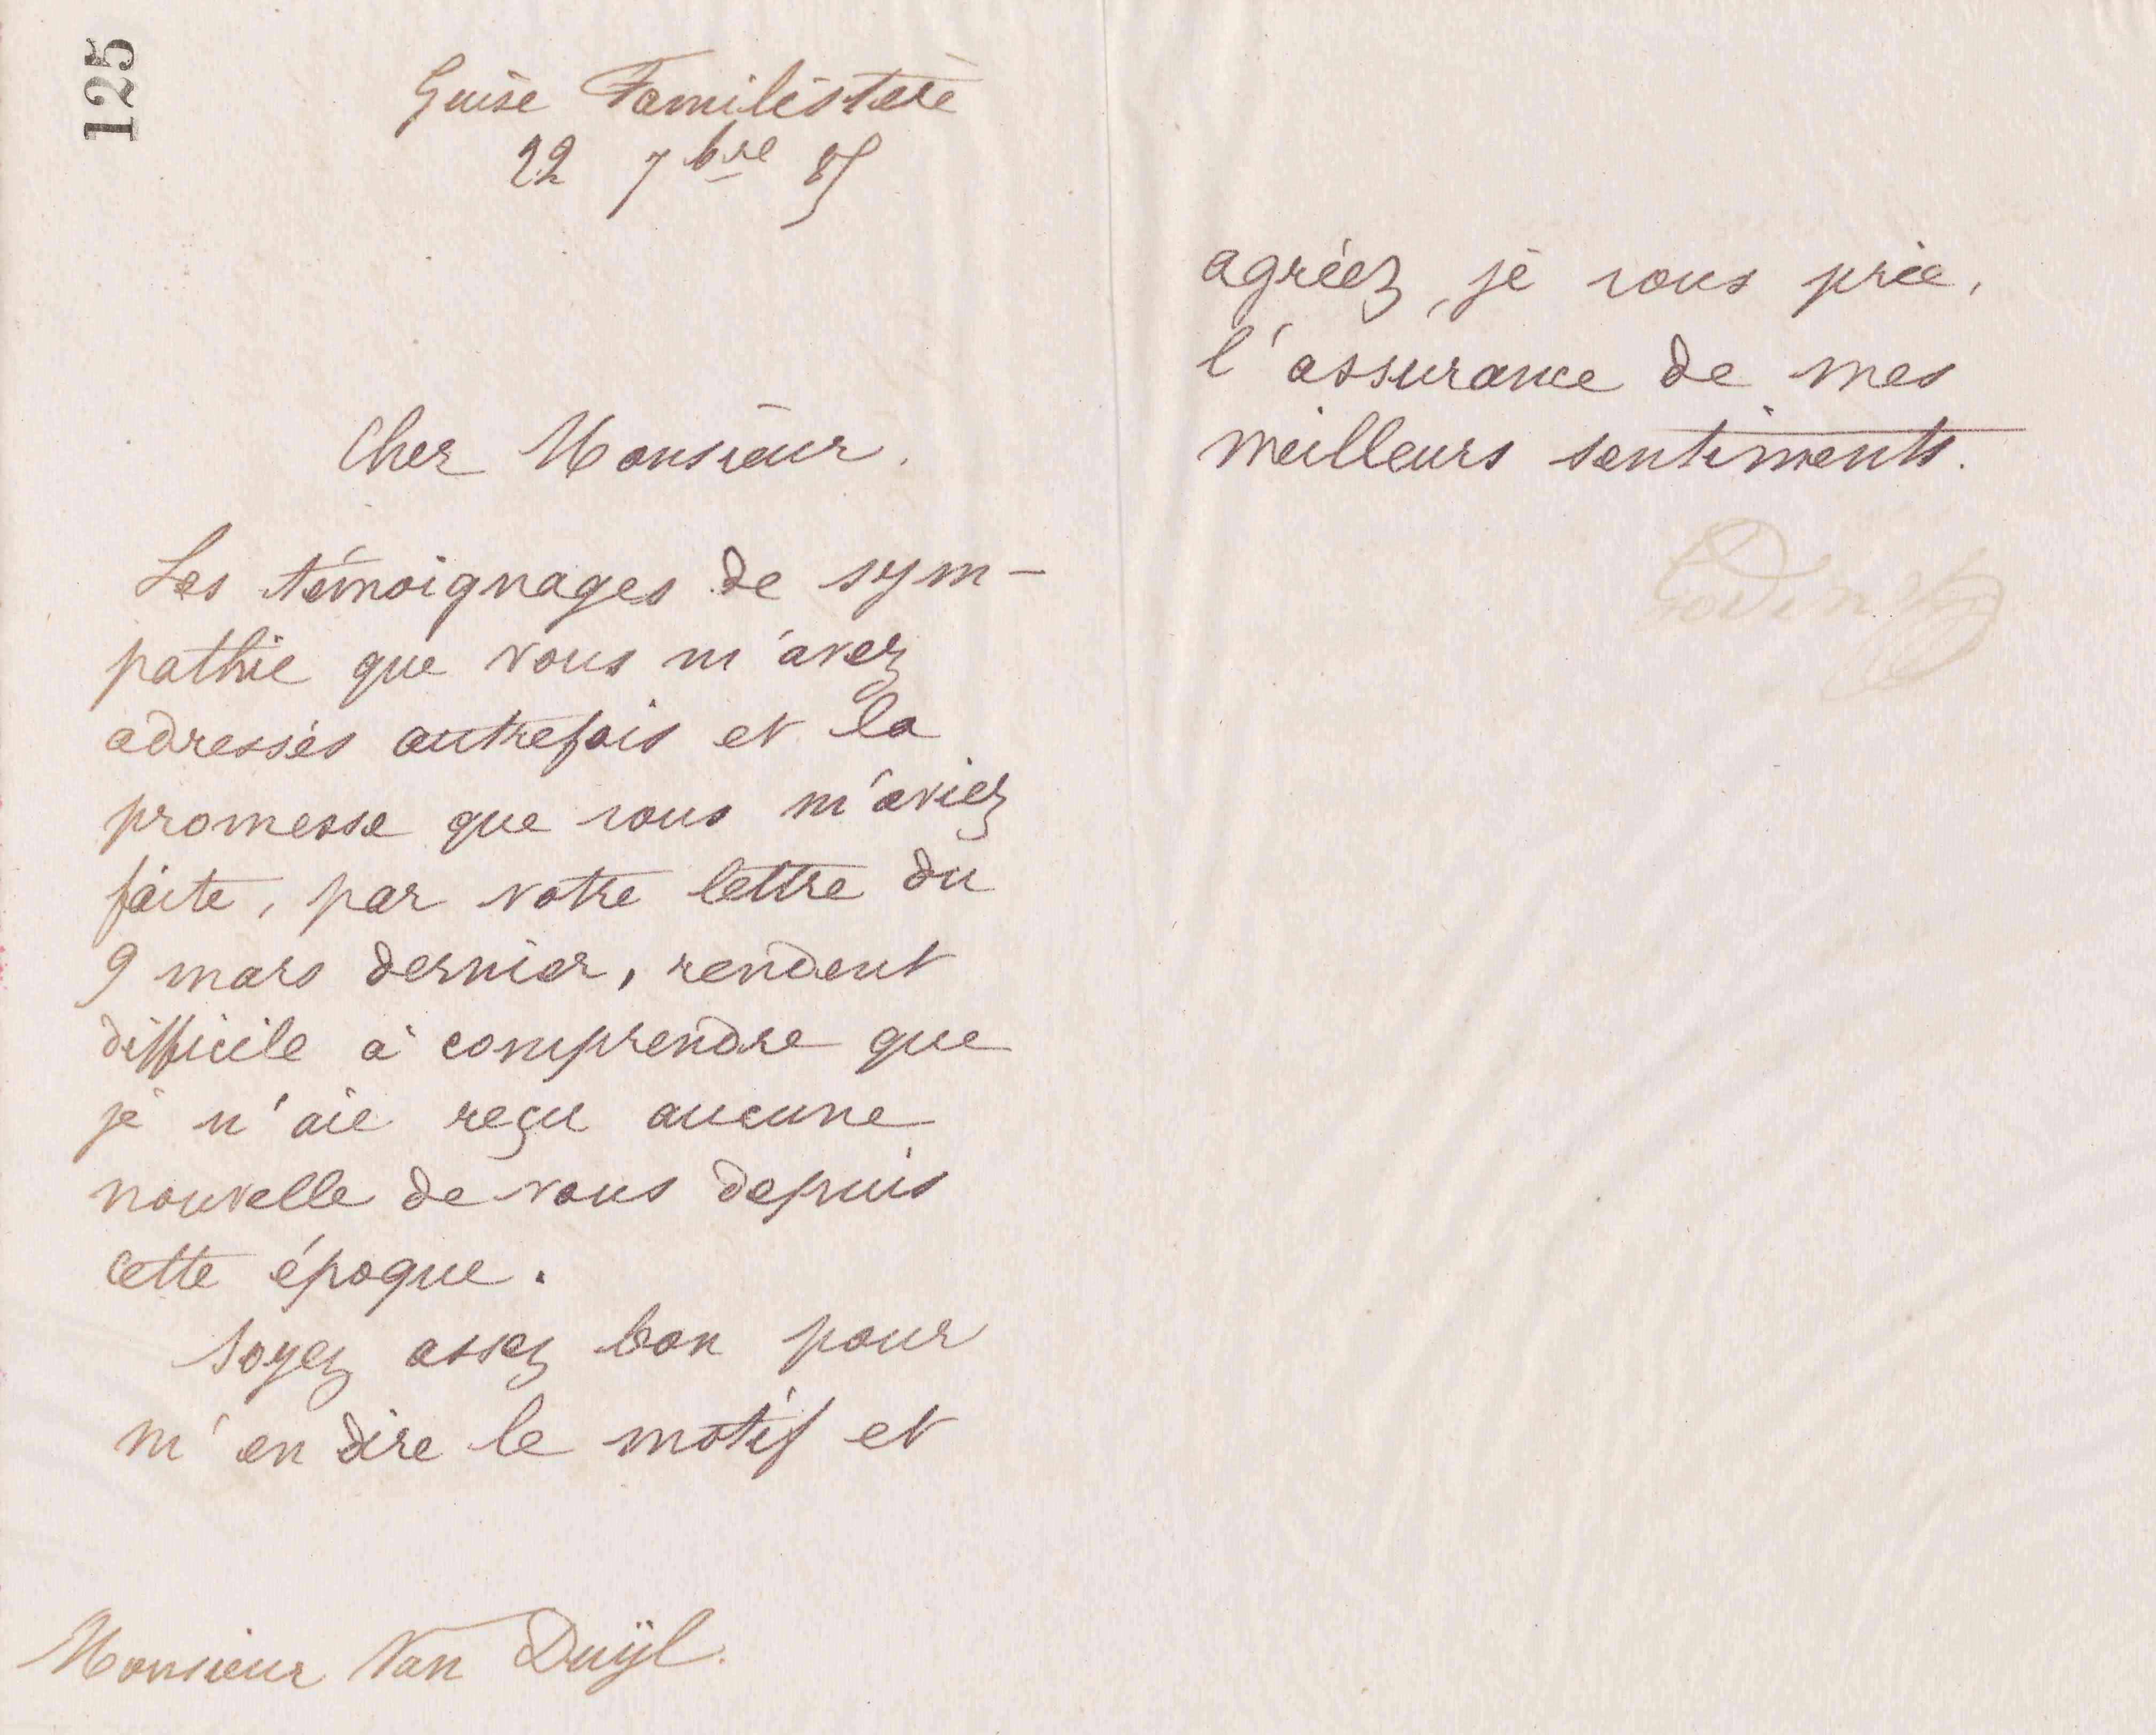 125
Guise Familistère
22 7bre 85
Cher Monsieur.
Les témoignages de sym-
pathie que vous m'avez
adressés autrefois et la
promesse que vous m'aviez
faite, par votre lettre du
9 mars dernier, rendent
difficile à comprendre que
je n'aie reçu aucune
nouvelle de vous depuis
cette époque.
Soyez assez bon pour
m'en dire le motif et
Monsieur Van Duÿl.
agréez, je vous prie,
l'assurance de mes
meilleurs sentiments.
Godin